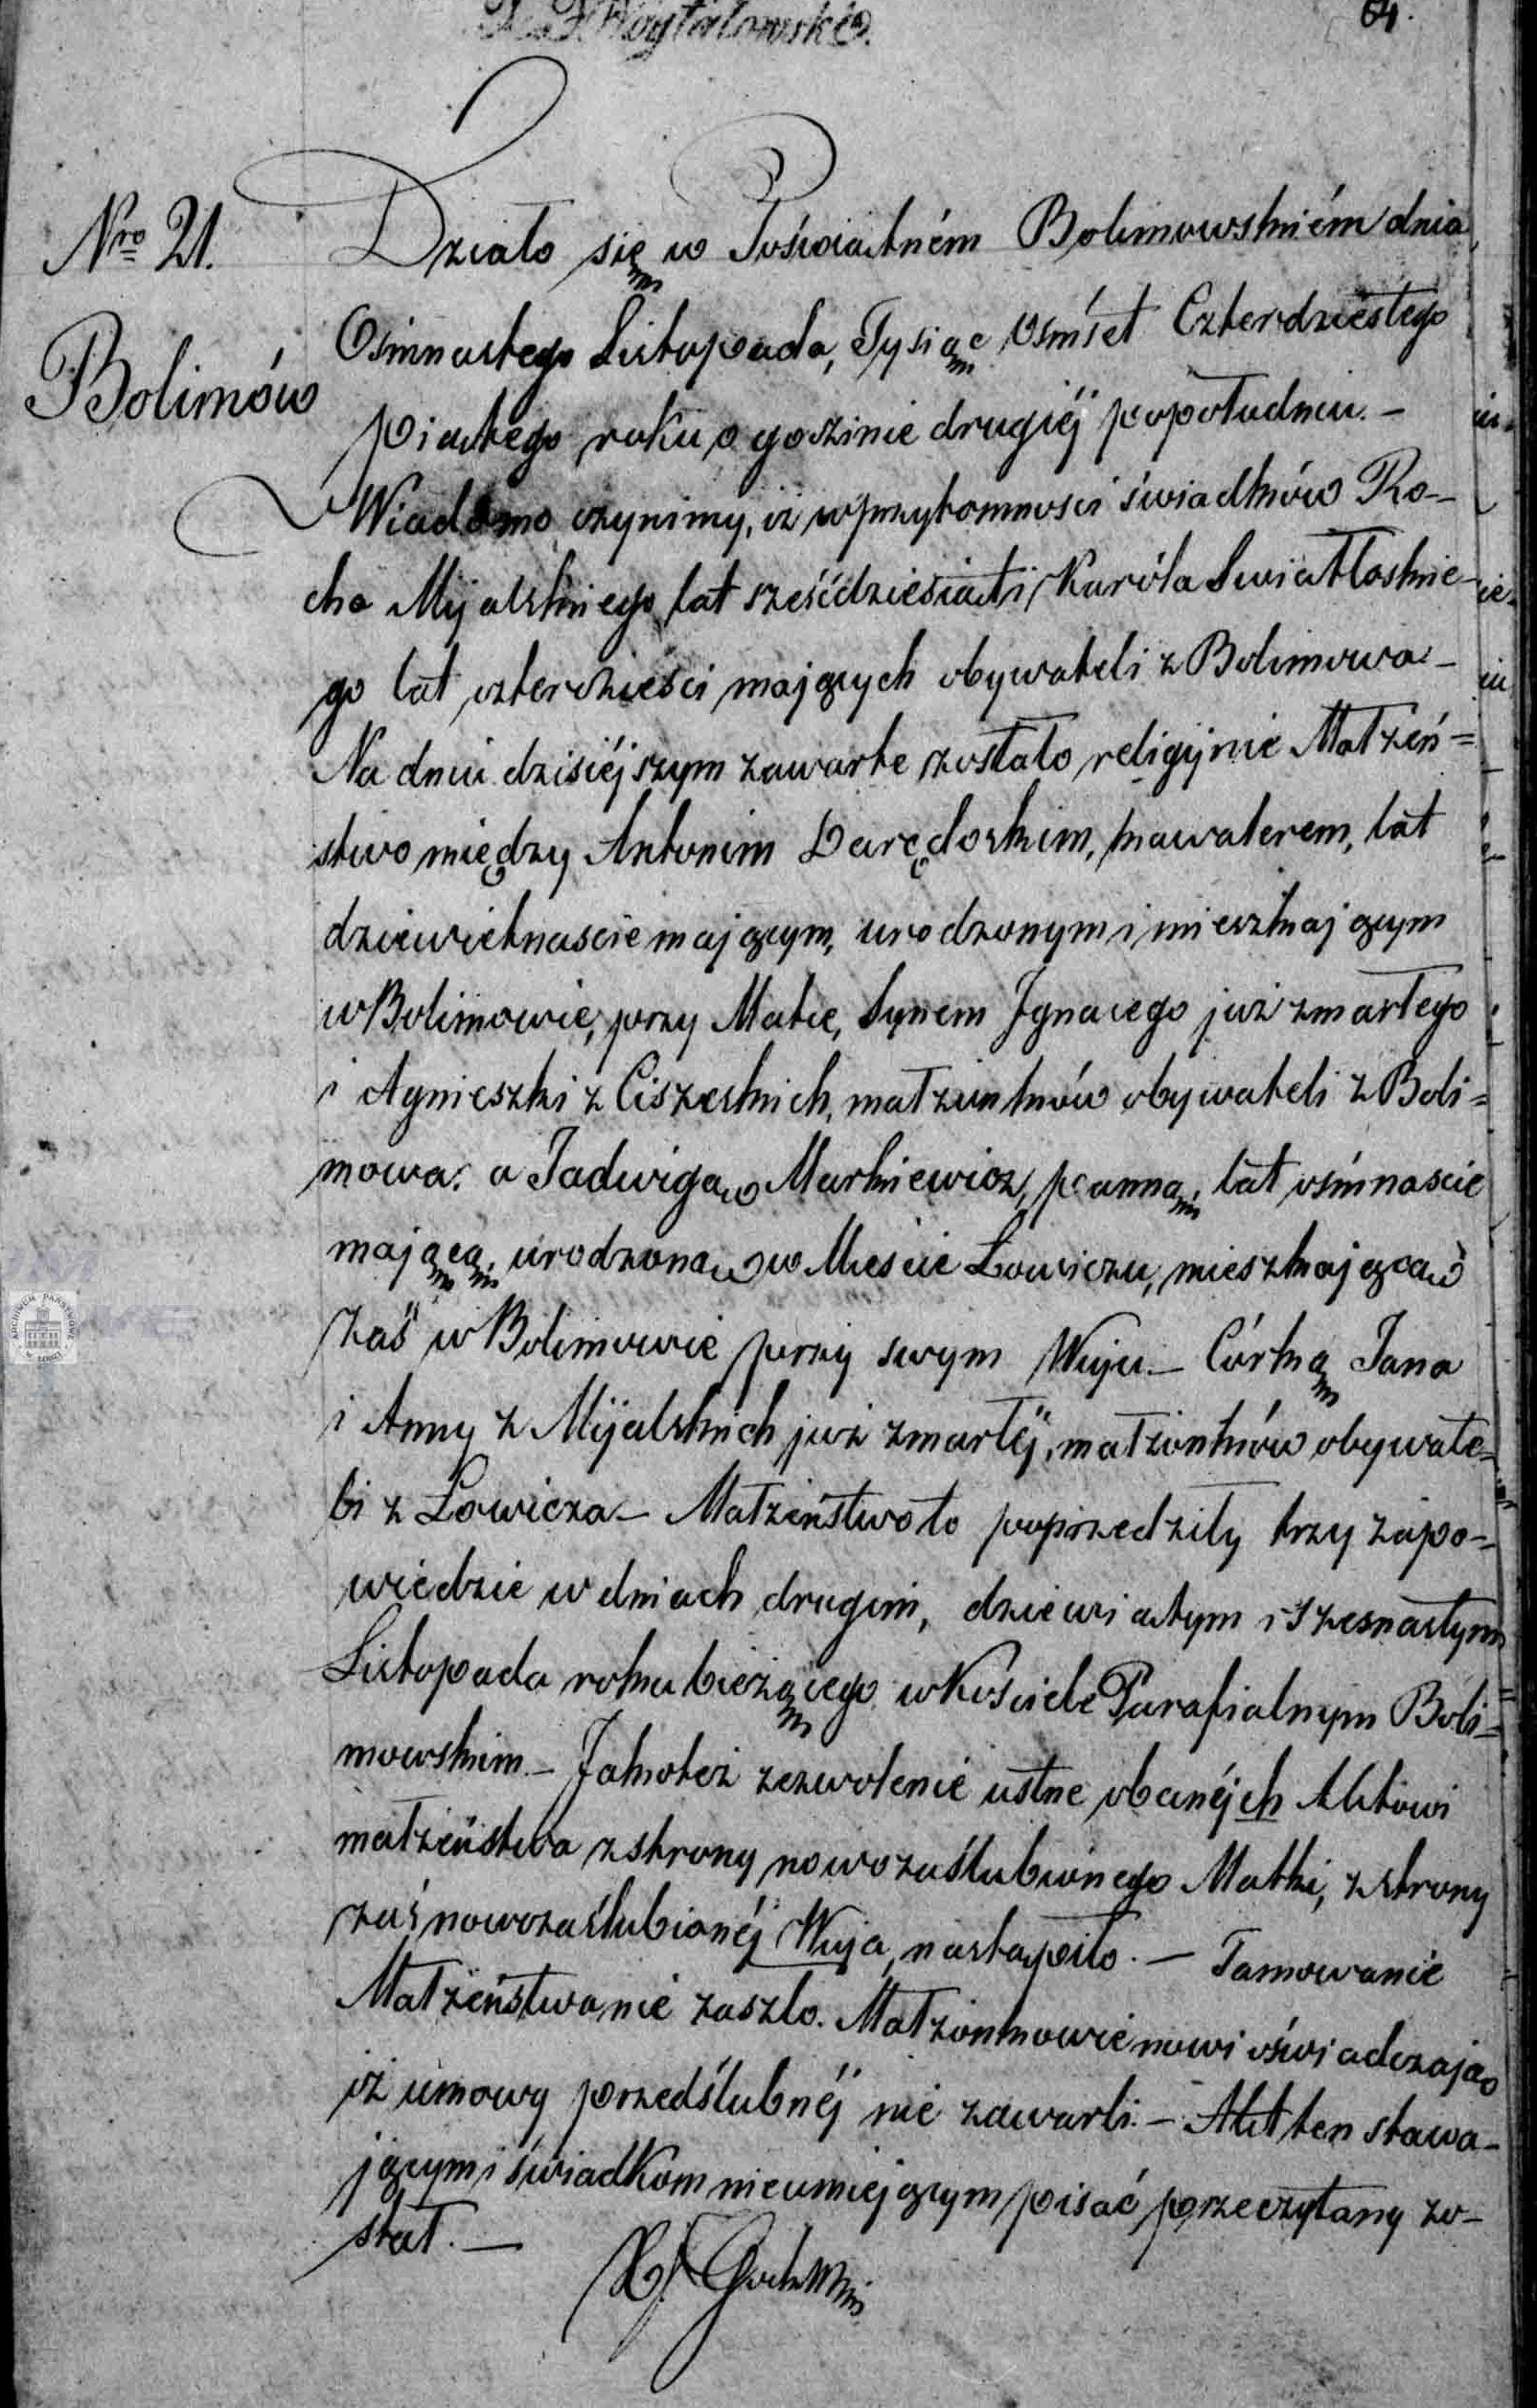 64.
Nro 21.
Bolimów
Działo się w Poświątném Bolimowskiém dnia
Osimnastego Listopada, Tysiąc Ośmset Czterdziestego
piątego roku o godzinie drugiéj popołudniu. –
Wiadomo czynimy, iż w przytomności świadków Ro-
cha Mijalskiego lat sześćdziesiąt i Karóla Swiatłoskie-
go lat czterdzieści mających obywateli z Bolimowa –
Na dniu dzisiéjszym zawarte zostało religijnie Małżeń=
stwo między Antonim Darędoskim, kawalerem, lat
dziewietnascie mającym, urodzonym i mieszkającym
w Bolimowie, przy Matce, Synem Jgnacego już zmarłego
i Agnieszki z Ciszeskich, małżonków obywateli z Boli=
mowa. a Jadwigą Markiewicz, panną, lat ośmnascie
mającą, urodzoną w Mieście Łowiczu, mieszkającą
zaś w Bolimowie przy swym Wuju – Córką Jana
i Anny z Mijalskich już zmarłéj, małżonków obywate-
li z Łowicza – Małżeństwo to poprzedziły trzy zapo-
wiedzie w dniach drugim, dziewiątym i Szesnastym
Listopada roku bieżącego w Kościele Parafialnym Boli-
mowskim. – Jakoteż zezwolenie ustne obcnéjch Aktowi
małżeństwa z strony nowozaślubionego Matki, z strony
zaś nowozaślubionéj Wuja, nastąpiło. – Tamowanie
Małżeństwa nie zaszło. Małżonkowie nowi oświadczają
iż umowy przedślubnéj nie zawarli. – Akt ten stawa-
jącym i świadkom nieumiejącym pisać przeczytany zo-
stał. –